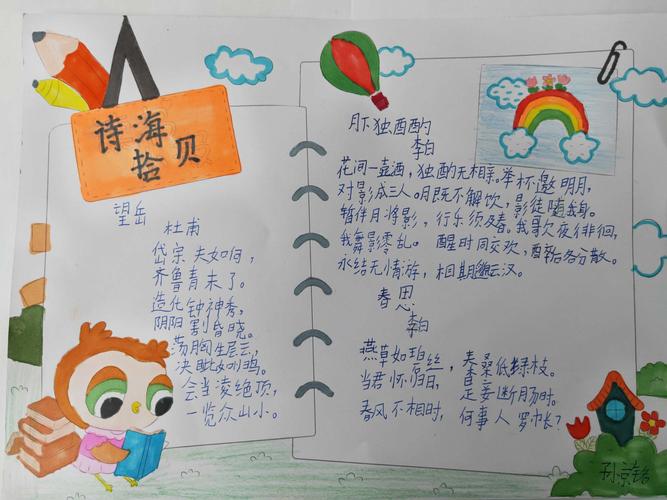 诗海
拾贝
望岳
杜甫
岱宗夫如何,
齐鲁青未了。
造化钟神秀,
阴阳割昏晓。
荡胸生层云,
决眦如归鸟。
会当凌绝顶,
一览众山小。
月下独酌
李白
花间一壶酒,独酌无相亲。举杯邀明月,
对影成三人。月既不解饮,影徒随我身。
暂伴月将影,行乐须及春。我歌夜徘徊,
我舞影零乱。醒时同交欢,醉后各分散。
永结无情游,相期邈云汉。
春思
李白
燕草如碧丝,秦桑低绿枝。
当君怀归日,是妾断肠时。
春风不相时,何事人罗帏?
孙京铭